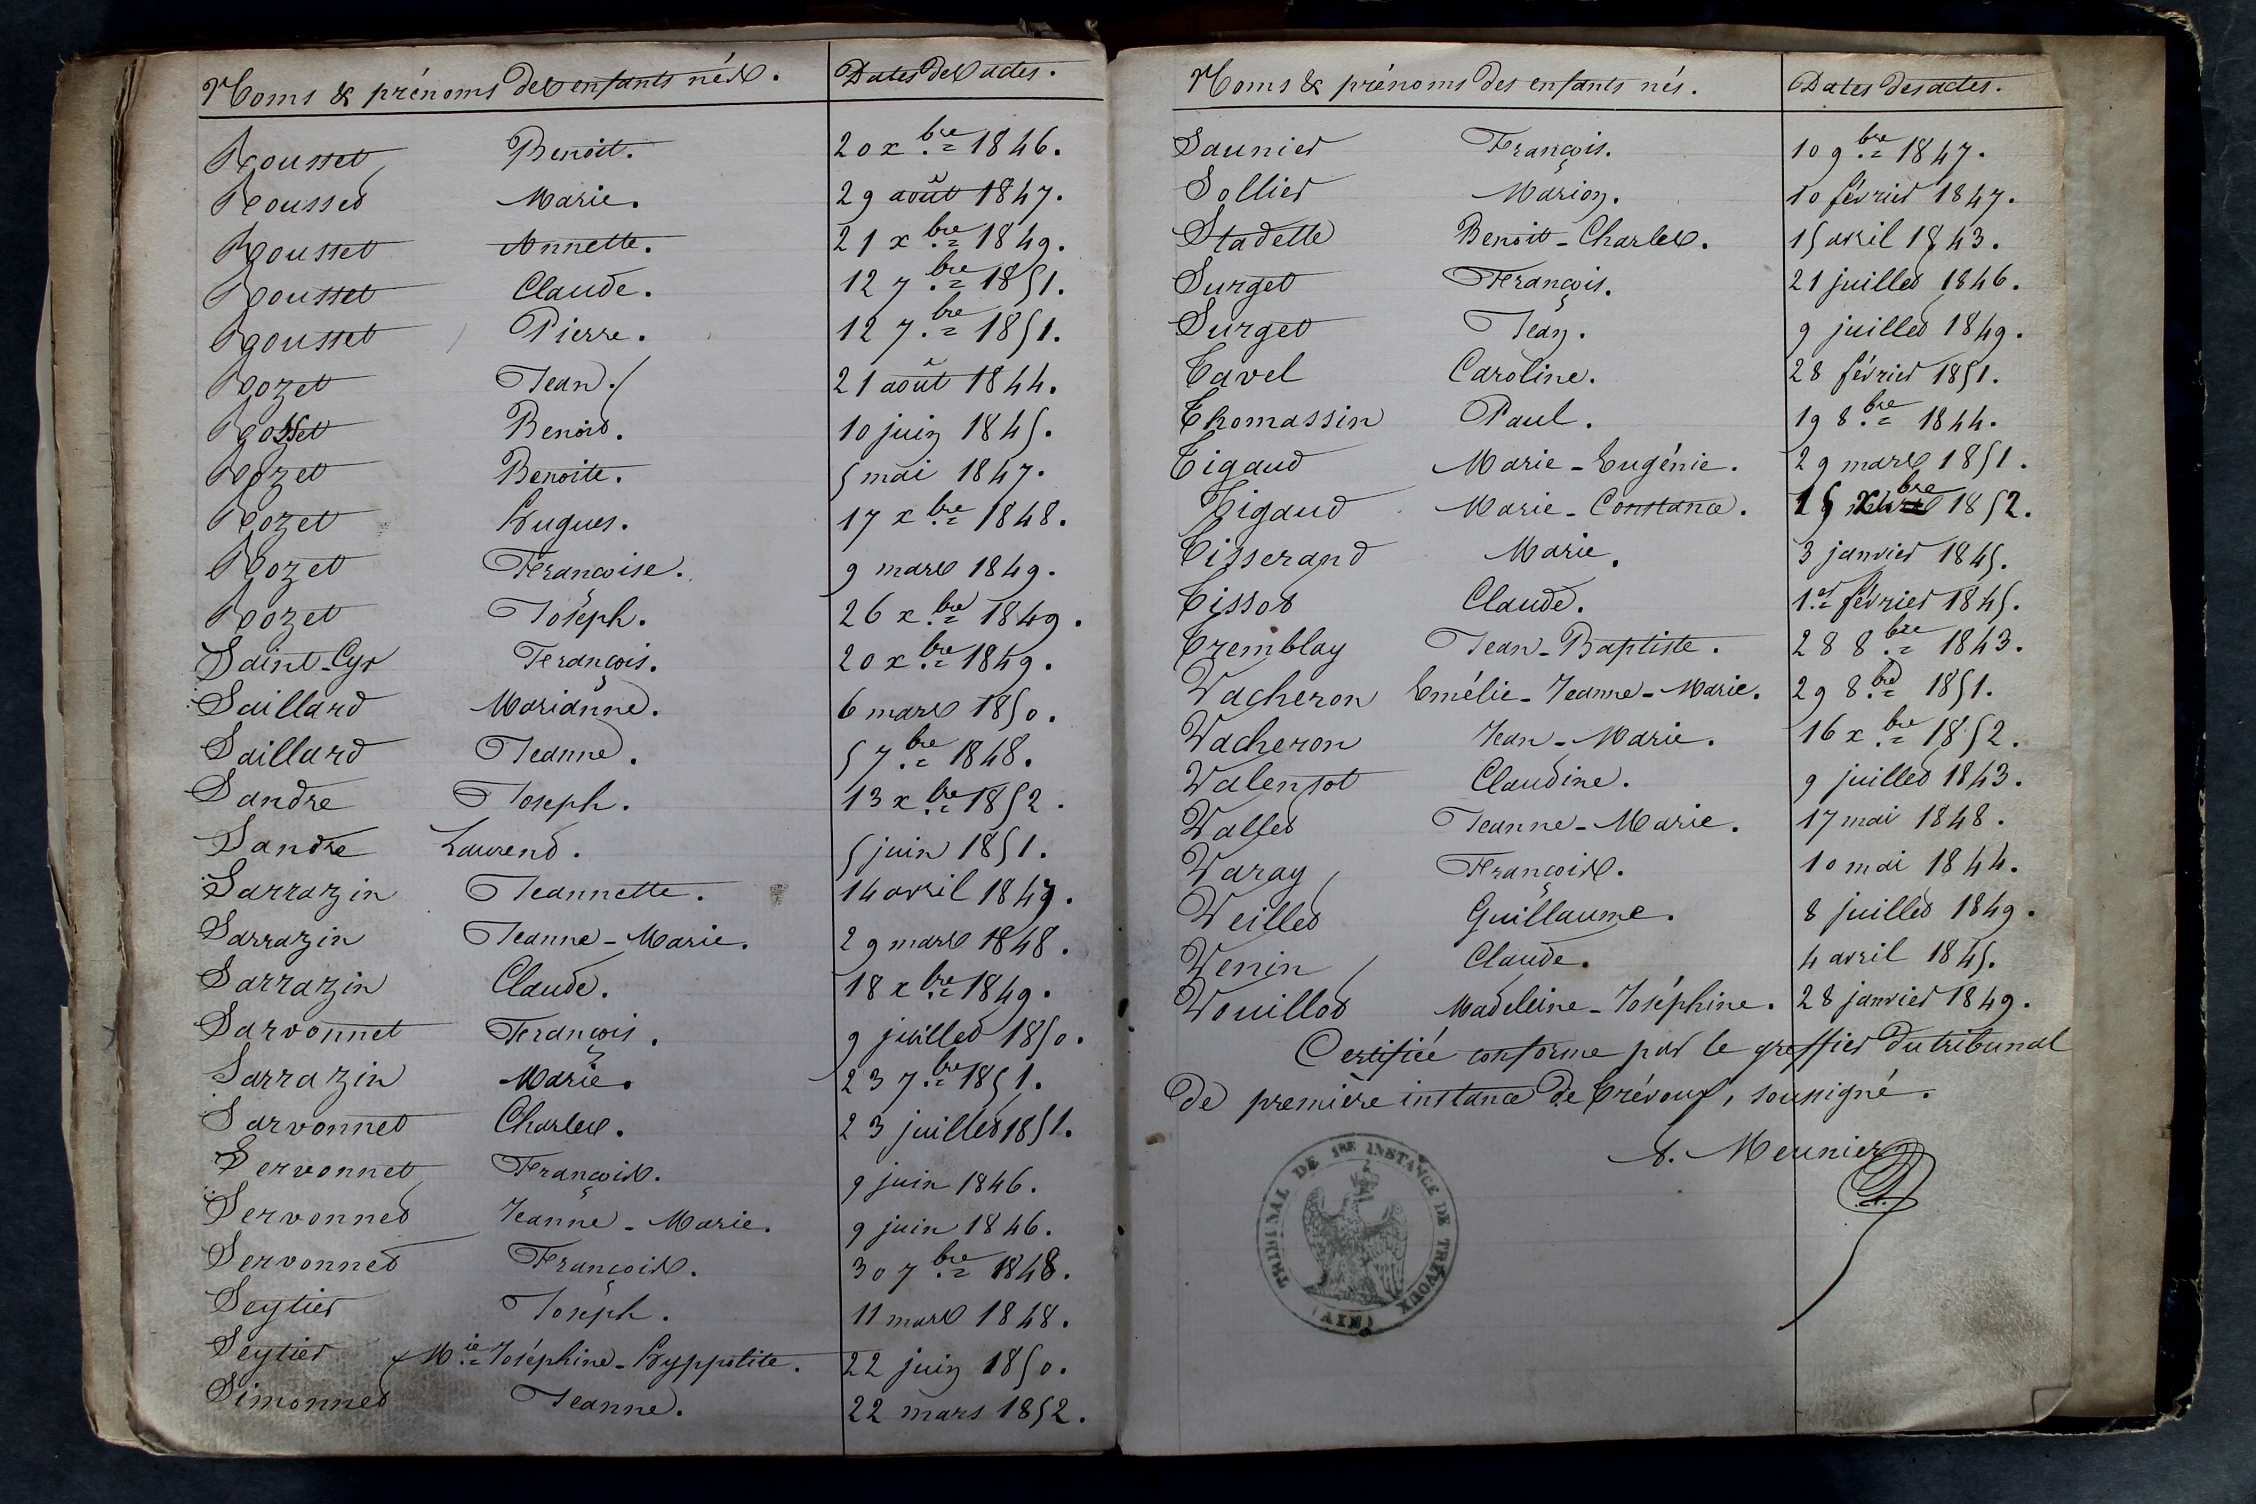 Noms & prénoms des enfants nés. Dates des actes.
Rousset Benoît. 20 xbre 1846.
Rousset Marie. 29 août 1847.
Rousset Annette. 21 xbre 1849.
Rousset Claude. 12 7bre 1851.
Rousset Pierre. 12 7bre 1851.
Rozet Jean. 21 août 1844.
Rozet Benoit. 10 juin 1845.
Rozet Benoite. 5 mai 1847.
Rozet Hugues. 17 xbre 1848.
Rozet Françoise. 9 mars 1849.
Rozet Joseph. 26 xbre 1849.
Saint-Cyr François. 20 xbre 1849.
Saillard Marianne. 6 mars 1850.
Saillard Jeanne. 5 7bre 1848.
Sandre Joseph. 13 xbre 1852.
Sandre Laurent. 5 juin 1851.
Sarrazin Jeannette. 14 avril 1847.
Sarrazin Jeanne-Marie. 29 mars 1848.
Sarrazin Claude. 18 xbre 1849.
Sarvonnet François. 9 juillet 1850.
Sarrazin Marie. 23 7bre 1851.
Sarvonnet Charles. 23 juillet 1851.
Servonnet François. 9 juin 1846.
Servonnet Jeanne-Marie. 9 juin 1846.
Servonnet François. 30 7bre 1848.
Seytier Joseph. 11 mars 1848.
Seytier Mie-Joséphine-Hyppolite. 22 juin 1850.
Simonnet Jeanne. 22 mars 1852.
Noms & prénoms des enfants nés. Dates des actes.
Saunier François. 10 9bre 1847.
Sollier Marion. 10 février 1847.
Stadelle Benoit-Charles. 15 avril 1843.
Surget François. 21 juillet 1846.
Surget Jean. 9 juillet 1849.
Tavel Caroline. 28 février 1851.
Thomassin Paul. 19 8bre 1844.
Tigaud Marie-Eugénie. 29 mars 1851.
Tigaud Marie-Constance. 15 xbre 1852.
Tisserand Marie. 3 janvier 1845.
Tissot Claude. 1er février 1845.
Tremblay Jean-Baptiste. 28 8bre 1843.
Vacheron Emélie-Jeanne-Marie. 29 8bre 1851.
Vacheron Jean-Marie. 16 xbre 1852.
Valensot Claudine. 9 juillet 1843.
Vallet Jeanne-Marie. 17 mai 1848.
Varay François. 10 mai 1844.
Veillet Guillaume. 8 juillet 1849.
Venin Claude. 4 avril 1845.
Vouillot Madeleine-Joséphine. 28 janvier 1849.
Certifiée conforme par le greffier du tribunal
de première instance de Trévoux, soussigné.
A. Meunier
TRIBUNAL DE 1RE INSTANCE DE TRÉVOUX (AIN)